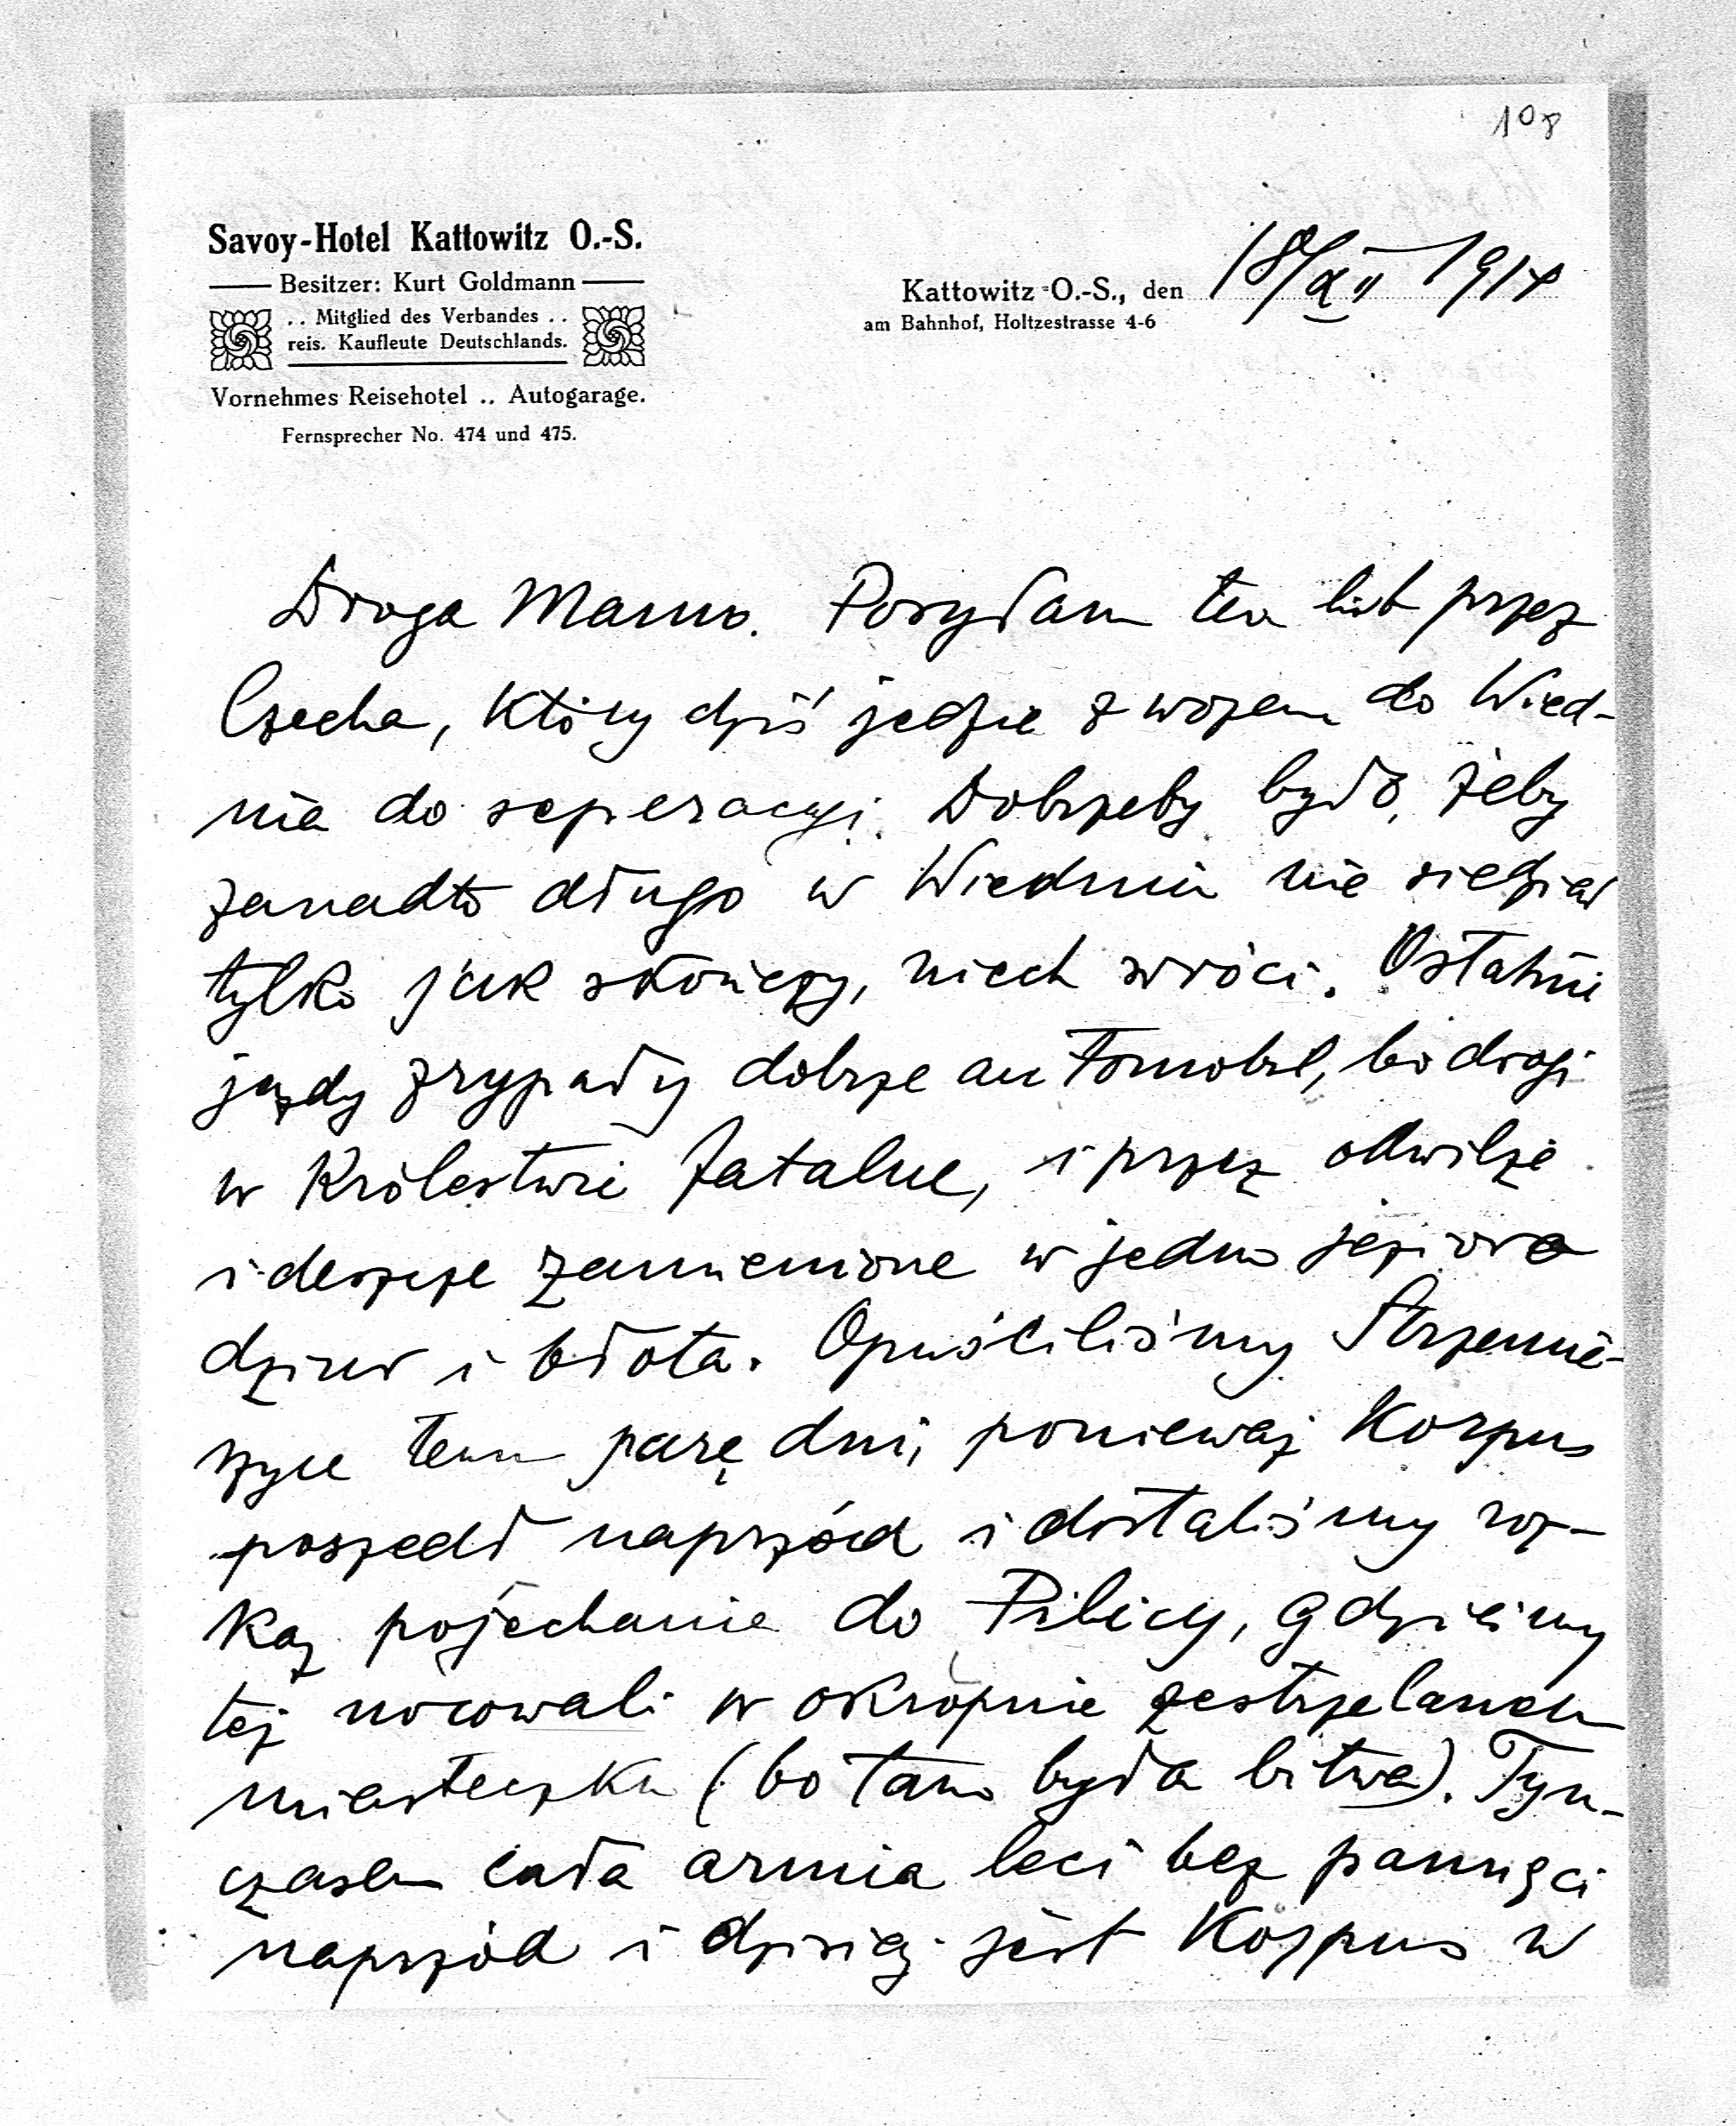 108
Savoy-Hotel Kattowitz O.-S.
Besitzer: Kurt Goldmann
.. Mitglied des Verbandes ..
reis. Kaufleute Deutschlands.
Vornehmes Reisehotel .. Autogarage.
Fernsprecher No. 474 und 475.
Kattowitz O.-S., den 18/XII 1914
am Bahnhof, Holtzestrasse 4-6
Droga Mamo. Posyłam ten list przez
Czecha, który dziś jedzie z wozem do Wied-
nia do reperacyi. Dobrzeby było, żeby
zanadto długo w Wiedniu nie siedział
tylko jak skończy, niech wróci. Ostatnie
jazdy zrypały dobrze automobil, bo drogi
w Królestwie fatalne, i przez odwilże
i deszcze zamienione w jedno jezioro
dziur i błota. Opuściliśmy Strzemie-
szyce temu parę dni, ponieważ Korpus
poszedł naprzód i dostaliśmy roz-
kaz pojechania do Pilicy, gdzieśmy
też nocowali w okropnie zestrzelanem
miasteczku (bo tam była bitwa). Tym-
czasem cała armia leci bez pamięci
naprzód i dzisiaj jest Korpus w